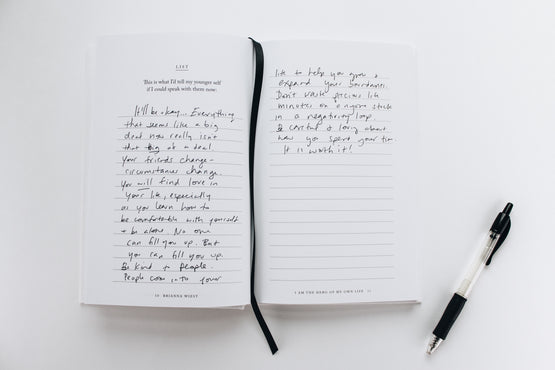 LIST
This is what I'd tell my younger self
if I could speak with them now:
It'll be okay... Everything
that seems like a big
deal now really isn't
that big of a deal.
Your friends change -
circumstances change.
You will find love in
your life, especially
as you learn how to
be comfortable with yourself
+ be alone. No one
can fill you up. But
you can fill you up.
Be kind to people.
People come into your
10 BRIANNA WIEST
life to help you grow +
expand your
Don't waste precious life
minutes on anyone stuck
in a negativity loop.
careful + loving about
how you spend your time.
It is worth it!
I AM THE HERO OF MY OWN LIFE 11